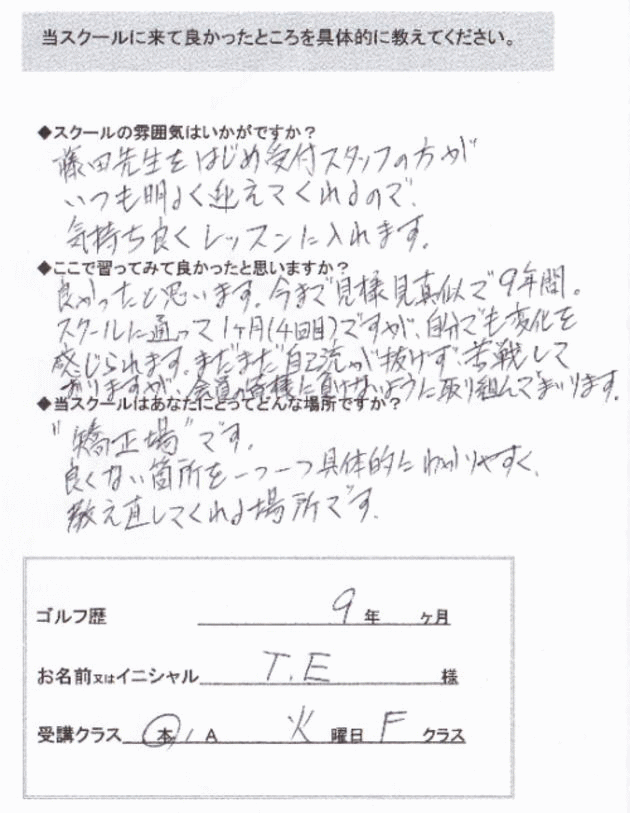 当スクールに来て良かったところを具体的に教えてください。
◆スクールの雰囲気はいかがですか？
藤田先生をはじめ受付スタッフの方が
いつも明るく迎えてくれるので、
気持ち良くレッスンに入れます。
◆ここで習ってみて良かったと思いますか？
良かったと思います。今まで見様見真似で9年間。
スクールに通って1ヶ月(4回目)ですが、自分でも変化を
感じられます。まだまだ自己流が抜けず、苦戦して
おりますが、会員の皆様に負けないように取り組んでまいります。
◆当スクールはあなたにとってどんな場所ですか？
"矯正場"です。
良くない箇所を一つ一つ具体的にわかりやすく、
教え直してくれる場所です。
ゴルフ歴 9 年 ヶ月
お名前又はイニシャル T.E 様
受講クラス 本 / A 火 曜日 F クラス